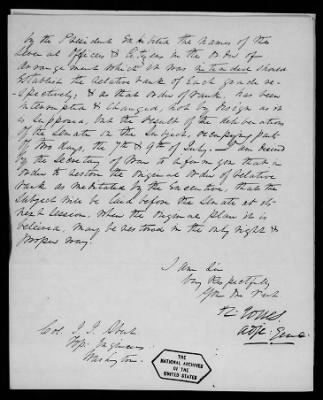 by the President exhibited the names of the
several Officers & Citizens in the order of
arrangement which it was intended should
establish the relative rank of each grade re-
spectively; & as that order of rank, has been
interrupted & changed, not by design as it
is supposed, but the result of the deliberation
of the Senate on the subject, occupying part
of two days, the 7th & 9th of July. I am desired
by the Secretary of War to inform you that in
order to restore the original order of relative
rank as meditated by the Executive, that the
subject will be laid before the Senate at its
next session. When the original plan it is
believed, may be restored in the only right &
proper way.
I am Sir
Very Respectfully
Your Ob. Servt
R. Jones
Adjt. Genl.
Col. J. J. Abert
Top: Engineers
Washington.
THE
NATIONAL ARCHIVES
OF THE
UNITED STATES